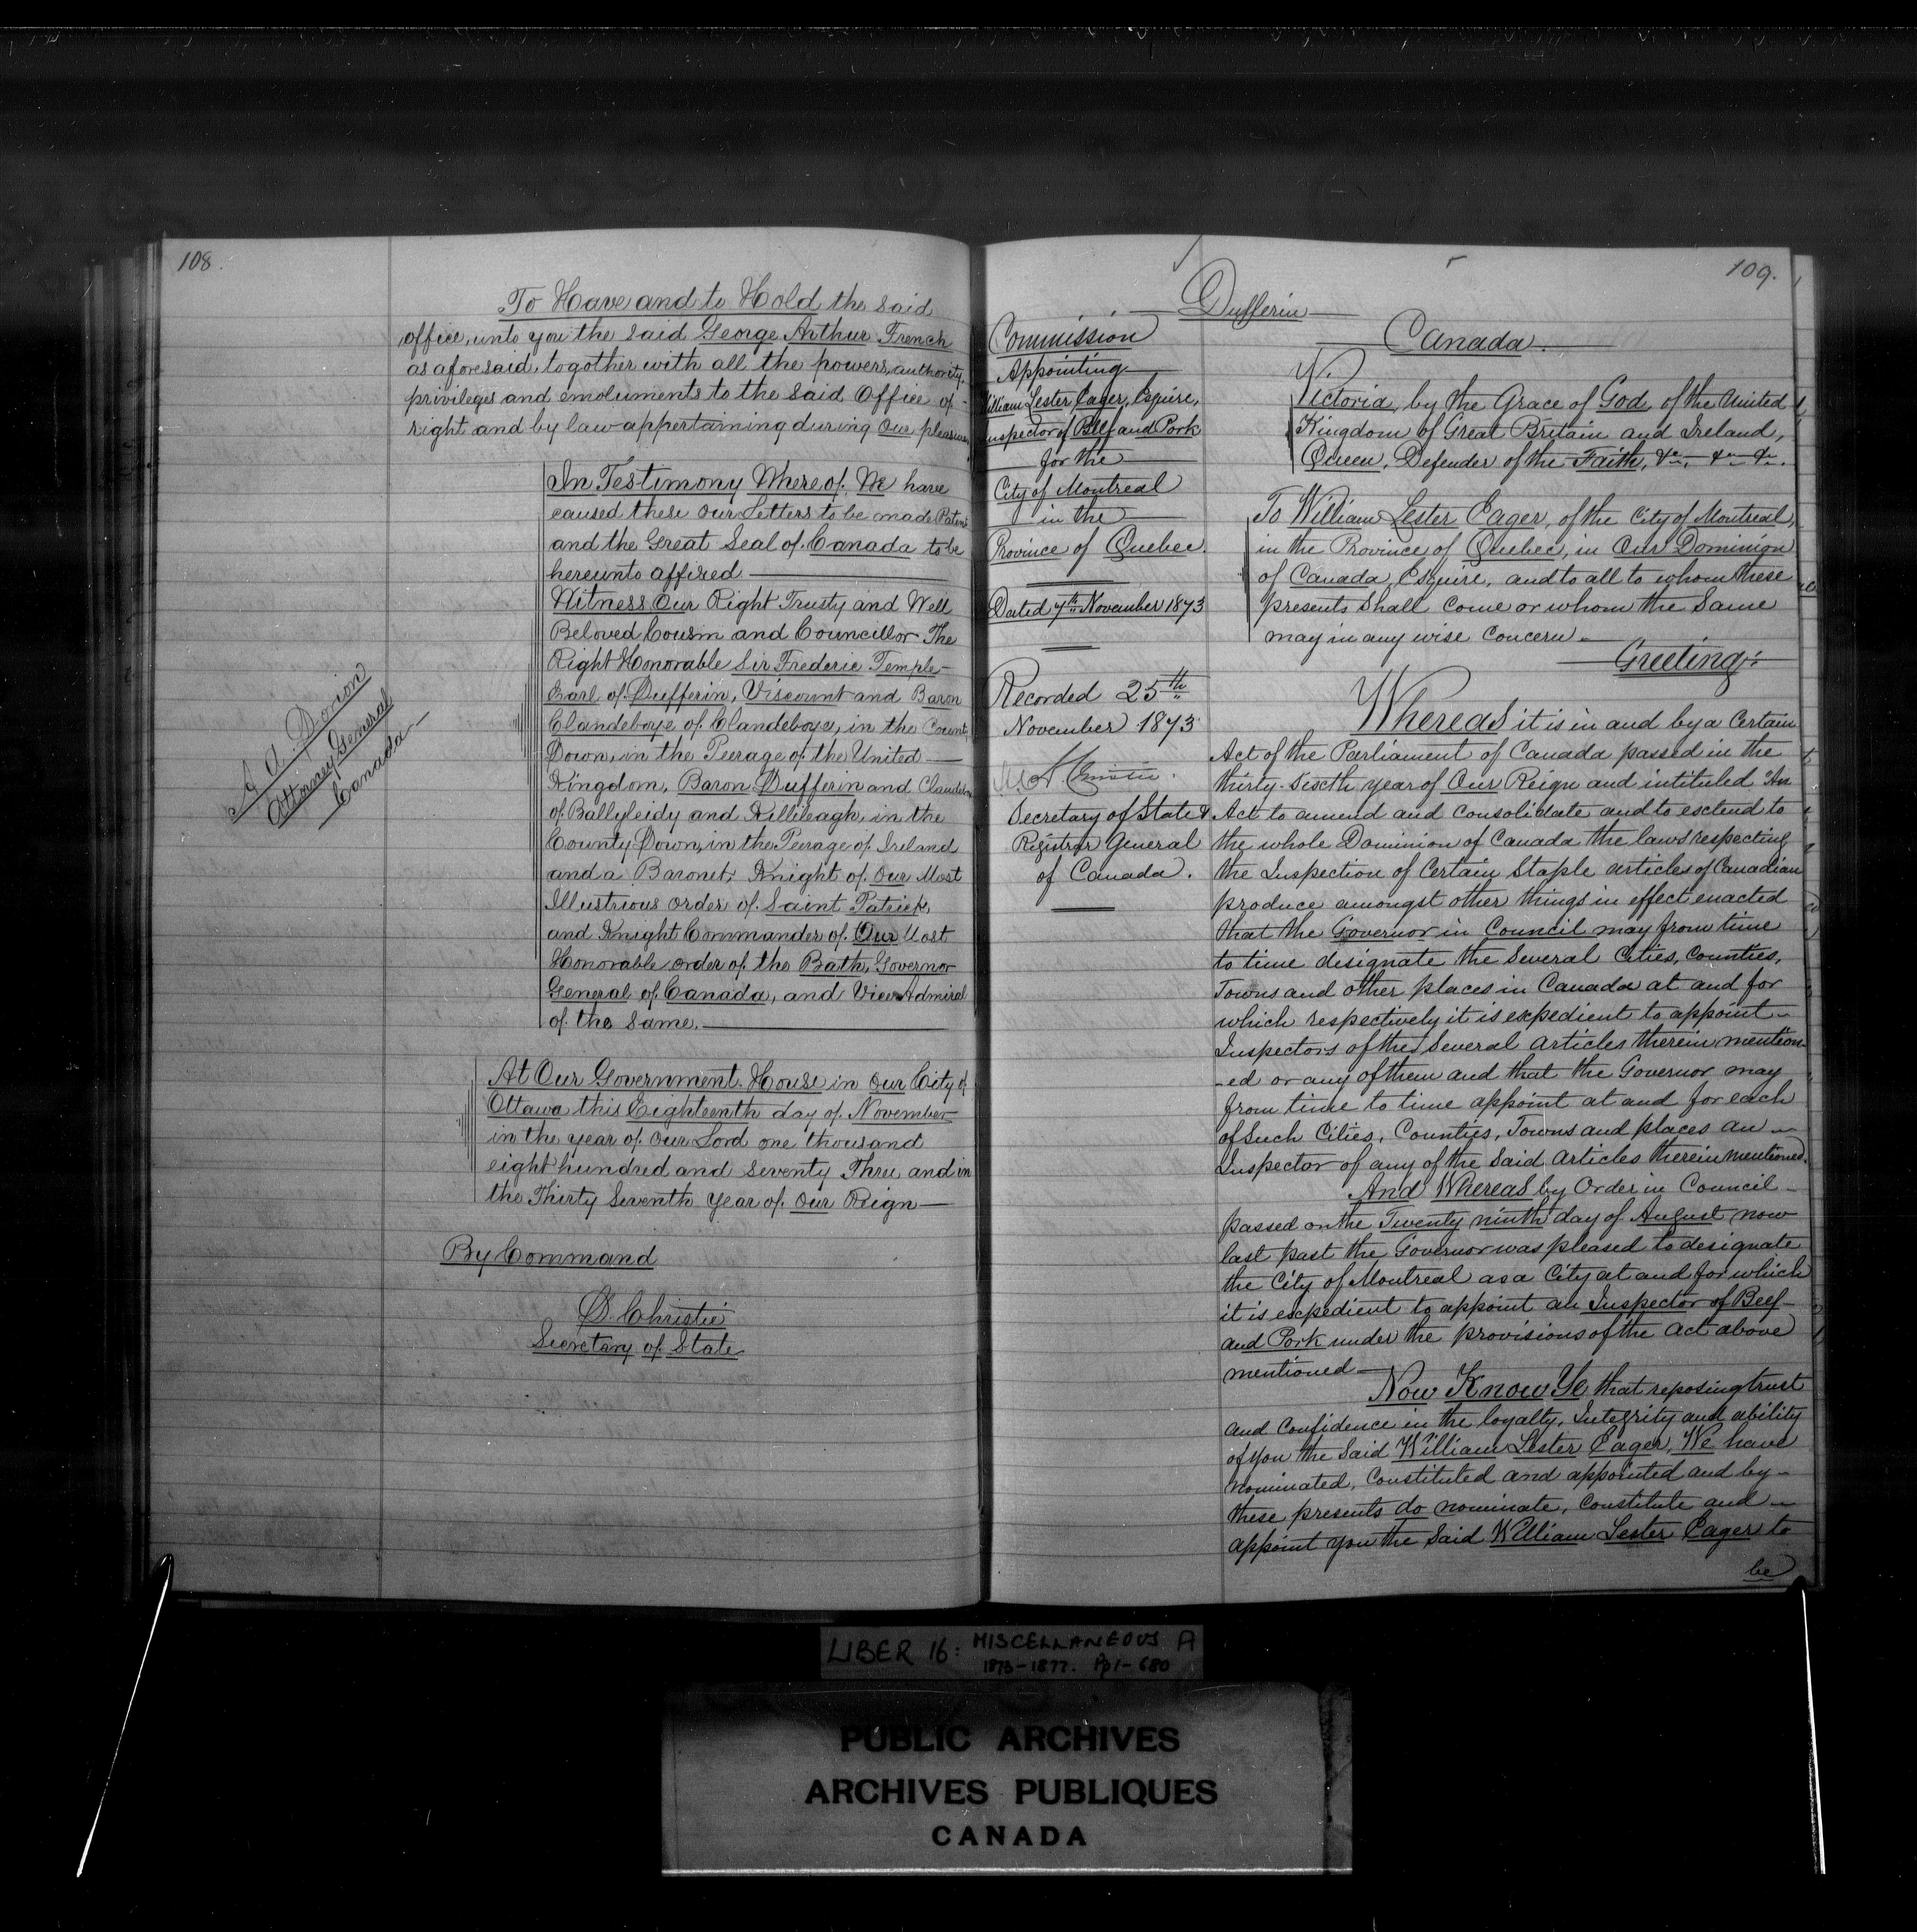 108.
To Have and to Hold the said
office, unto you the said George Arthur French
as aforesaid, together with all the powers, authority,
privileges and emoluments to the said Office of
right and by law appertaining during Our pleasure
In Testimony Whereof, We have
caused these Our Letters to be made Patent
and the Great Seal of Canada to be
hereunto affixed
Witness Our Right Trusty and Well
Beloved Cousin and Councillor The
Right Honorable Sir Frederic Temple
Earl of Dufferin, Viscount and Baron
Clandeboye of Clandeboye, in the County
Down, in the Peerage of the United
Kingdom, Baron Dufferin and Clandeboye
of Ballyleidy and Killileagh, in the
County Down, in the Peerage of Ireland
and a Baronet, Knight of Our Most
Illustrious order of Saint Patrick,
and Knight Commander of Our Most
Honorable order of the Bath, Governor
General of Canada, and Vice Admiral
of the Same.
A. A. Dorion
Attorney General
Canada
At Our Government House in Our City of
Ottawa this Eighteenth day of November
in the year of Our Lord one thousand
eight hundred and Seventy Three and in
the Thirty Seventh Year of Our Reign
By Command
D. Christie
Secretary of State
109.
Dufferin
Commission
Appointing
William Lester Eager, Esquire,
Inspector of Beef and Pork
for the
City of Montreal
in the
Province of Quebec.
Dated 7th November 1873
Recorded 25th
November 1873
Secretary of State &
Registrar General
of Canada.
Canada.
Victoria, by the Grace of God, of the United
Kingdom of Great Britain and Ireland,
Queen, Defender of the Faith, &c. &c. &c.
To William Lester Eager, of the City of Montreal,
in the Province of Quebec, in Our Dominion
of Canada, Esquire, and to all to whom these
presents Shall Come or whom the Same
may in any wise Concern
Greeting:
Whereas it is in and by a Certain
Act of the Parliament of Canada passed in the
thirty-Sixth year of Our Reign and intituled "An
Act to amend and Consolidate and to extend to
the whole Dominion of Canada the laws respecting
the Inspection of Certain Staple articles of Canadian
produce amongst other things in effect enacted
that the Governor in Council may from time
to time designate the Several Cities, Counties,
Towns and other places in Canada at and for
which respectively it is expedient to appoint
Inspectors of the Several articles therein mention-
-ed or any of them and that the Governor may
from time to time appoint at and for each
of Such Cities, Counties, Towns and places an
Inspector of any of the Said Articles therein mentioned.
And Whereas by Order in Council
passed on the Twenty ninth day of August now
last past the Governor was pleased to designate
the City of Montreal as a City at and for which
it is expedient to appoint an Inspector of Beef
and Pork under the provisions of the act above
mentioned
Now Know Ye that reposing trust
and Confidence in the loyalty, Integrity and ability
of you the Said William Lester Eager, We have
nominated, Constituted and appointed and by
these presents do nominate, Constitute and
appoint you the Said William Lester Eager to
be
LIBER 16: MISCELLANEOUS A
1873-1877. Pp 1-680
PUBLIC ARCHIVES
ARCHIVES PUBLIQUES
CANADA